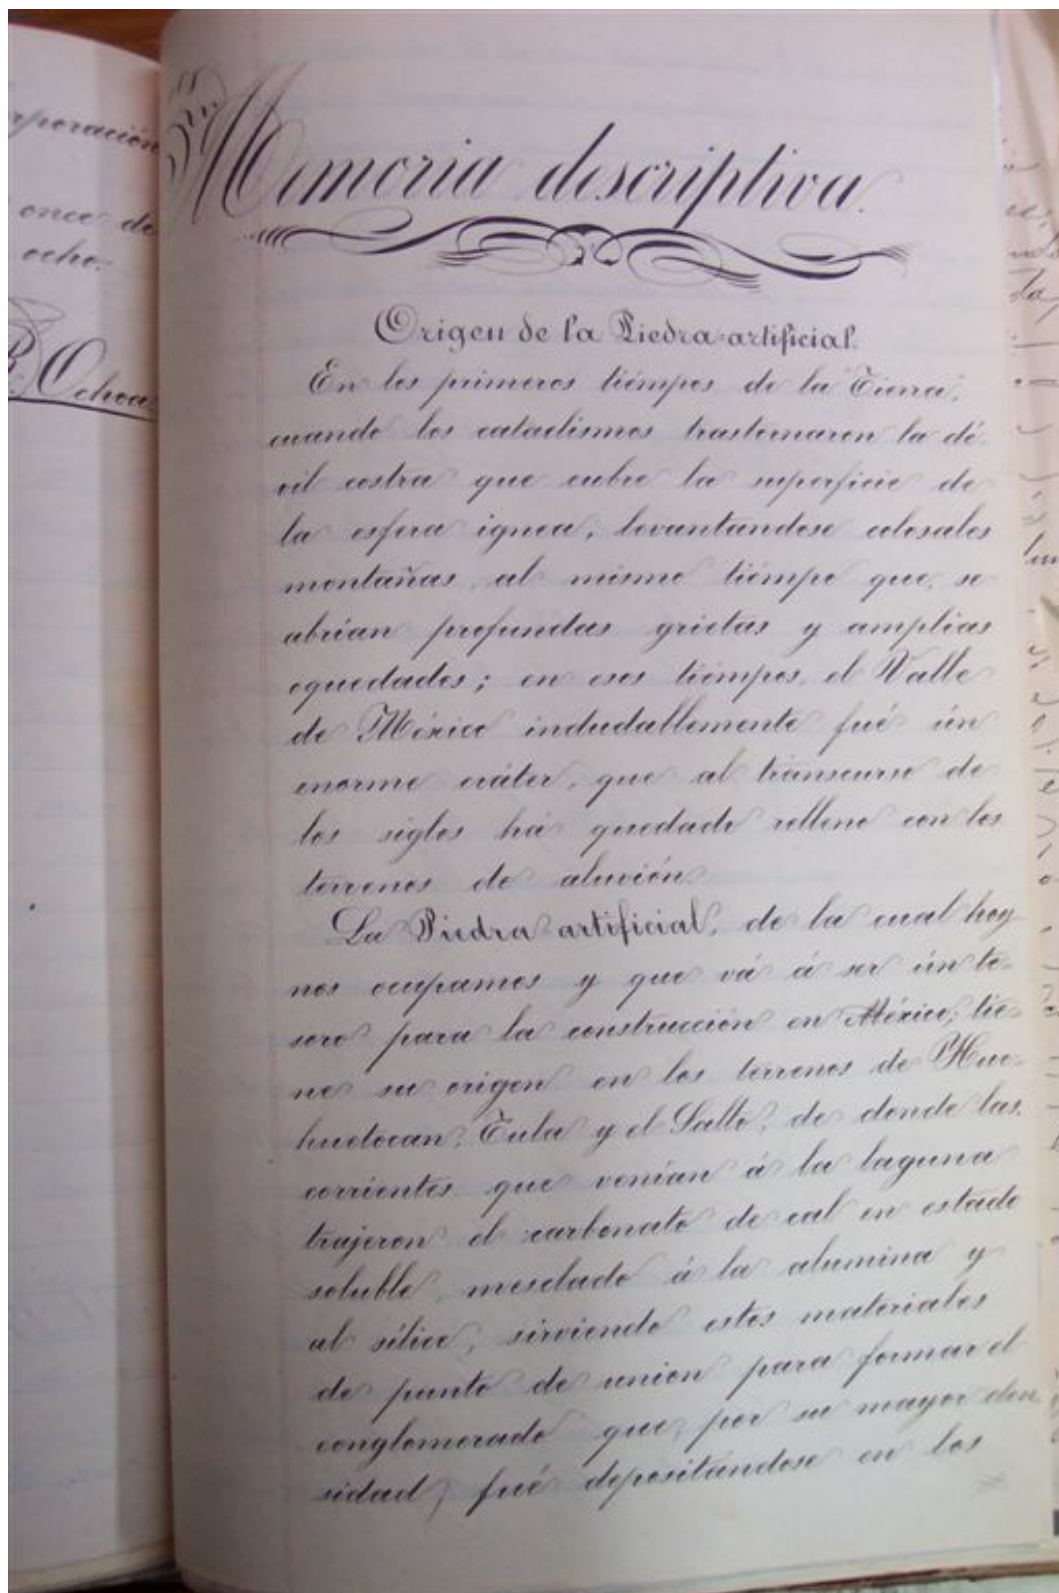 rporación
once de
ocho.
R. Ochoa
Memoria descriptiva.
Origen de la Piedra-artificial.
En los primeros tiémpos de la Tierra,
cuando los cataclismos trastornaron la dé-
vil costra que cubre la superficie de
la esfera ignea, levantandose colosales
montañas al mismo tiémpo que, se
abrian profundas grietas y amplias
oquedades; en esos tiémpos, el Valle
de México indudablemente fué ún
enorme cráter, que al transcurso de
los siglos há quedado relleno con los
terrenos de aluvión.
La Piedra artificial, de la cual hoy
nos ocupamos y que vá á ser ún te-
soro para la construcción en México; tie-
ne su origen en los terrenos de Hue-
huetocan, Tula y el Salto, de donde las
corrientes que venían á la laguna
trajeron el carbonato de cal en estado
soluble, mesclado á la alumina y
al sílice, sirviendo estos materiales
de punto de union para formar el
conglomerado que, por su mayor den
sidad, fué depositándose en los